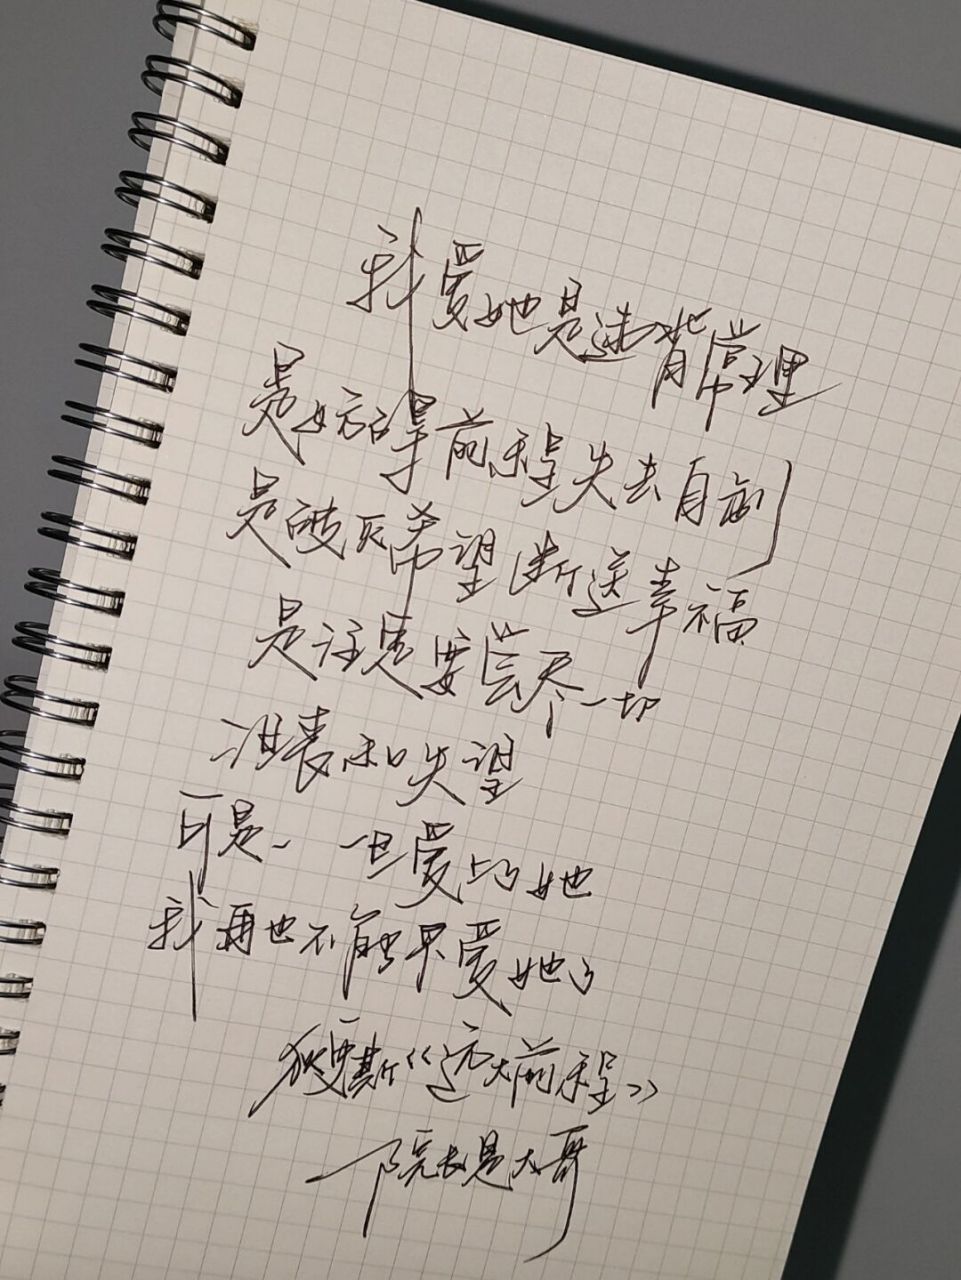 我爱她是违背常理
是妨碍前程失去自制
是破灭希望断送幸福
是注定要尝尽一切
沮丧和失望
可是、一旦爱上了她
我再也不能不爱她了
狄更斯《远大前程》
院长是大哥